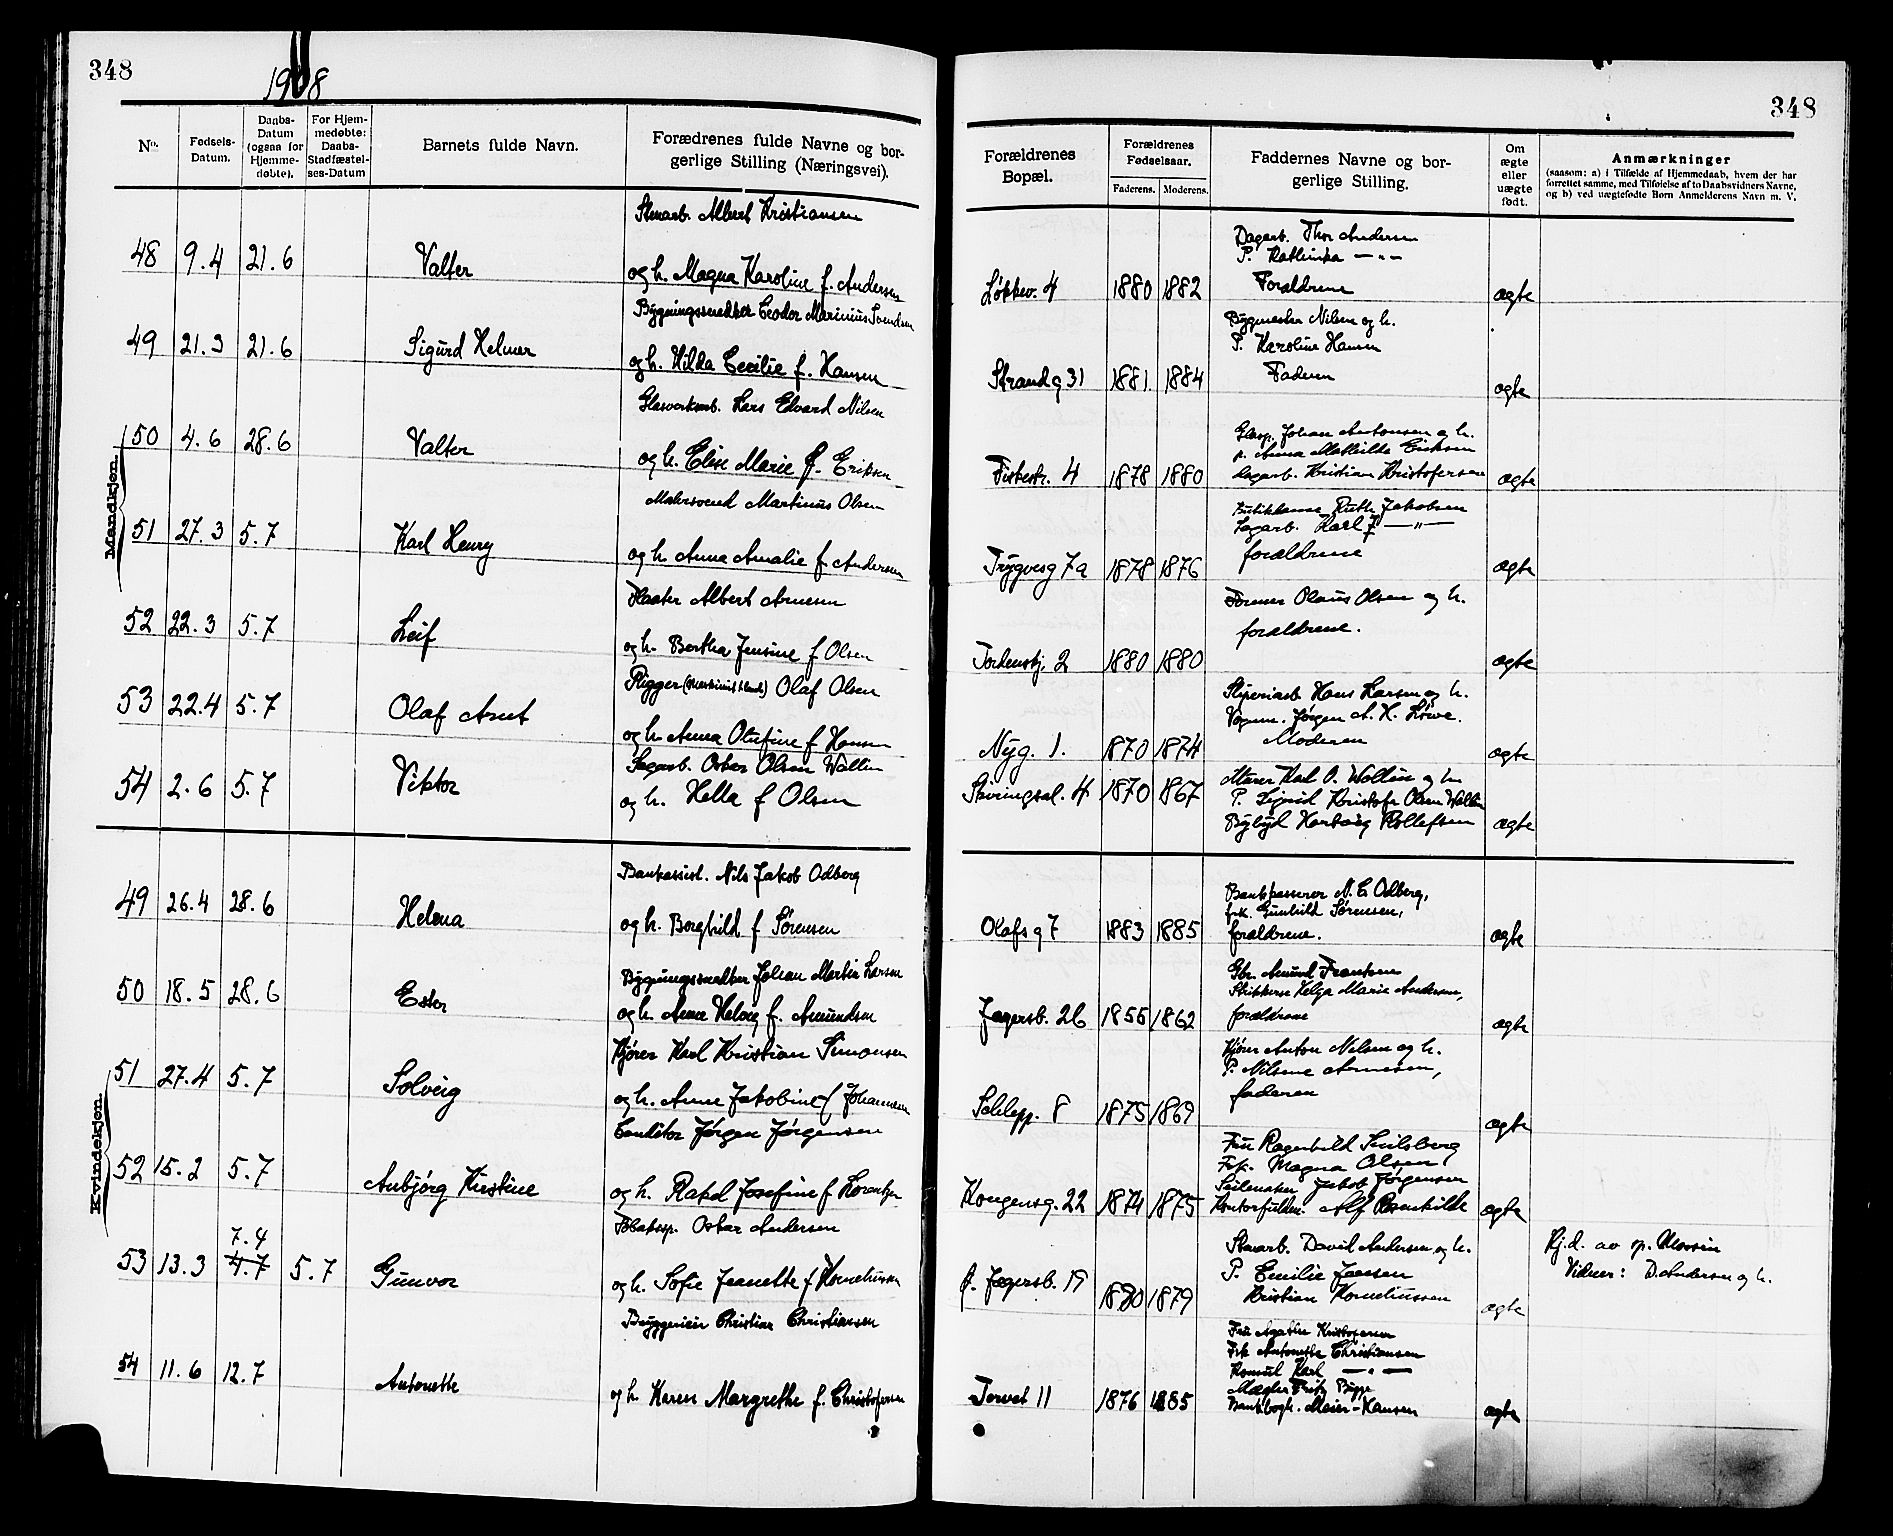 348
1908
No.
Fødsels-Datum.
Daabs-Datum (ogsaa for Hjemmedøbte).
For Hjemmedøbte: Daabs-Stadfæstelses-Datum
Barnets fulde Navn.
Forædrenes fulde Navne og borgerlige Stilling (Næringsvei).
Mandkjøn.
Stenarb. Albert Kristiansen
48 9.4 21.6 Valter
og h. Magna Karoline f. Andersen
Bygningssnedker Teodor Marinius Svendsen
49 21.3 21.6 Sigurd Helmer
og h. Hilda Cecilie f. Hansen
Glasverksarb. Lars Edvard Nilsen
50 4.6 28.6 Valter
og h. Elise Marie f. Eriksen
Malersvend Martinus Olsen
51 27.3 5.7 Karl Henry
og h. Anna Amalie f. Andersen
Albert Arnesen
52 22.3 5.7 Leif
og h. Bertha Jensine f Olsen
Rigger Olaf Olsen
53 22.4 5.7 Olaf Arnt
og h. Anna Olufine f Hansen
Sagarb. Oskar Olsen Wallin
54 2.6 5.7 Viktor
og h. Hella f Olsen
Kvindekjøn.
Bankassist. Nils Jakob Odberg
49 26.4 28.6 Helena
og h. Borghild f Sørensen
Bygningssnedker Johan Martin Larsen
50 18.5 28.6 Ester
og h. Anne Helvig f. Amundsen
Kjører Karl Kristian Simonsen
51 27.4 5.7 Solveig
og h. Anne Jakobine f Johannsen
Conditor Jørgen Jørgensen
52 15.2 5.7 Anbjørg Kirstine
og h. Rakel Josefine f Lorentzen
Oskar Andersen
7.4
53 13.3 4.7 5.7 Gunvor
og h. Sofie Jeanette f Korneliussen
Bryggerieier Christian Christiansen
54 11.6 12.7 Antonette
og h. Karen Margrethe f. Christofersen
348
Forældrenes Bopæl.
Forældrenes Fødselsaar.
Faderens. Moderens.
Faddernes Navne og borgerlige Stilling.
Om ægte eller uægte født.
Anmærkninger
(saasom: a) i Tilfælde af Hjemmedaab, hvem der har
forrettet samme, med Tilføielse af to Daabsvidners Navne,
og b) ved uægtefødte Børn Anmelderens Navn m. V.
Dagarb. Thor Andersen
P. Kathinka — " —
Løkkev. 4 1880 1882 Forældrene ægte
Bygmester Nilsen og h.
P. Karoline Hansen
Strandg 31 1881. 1884 Faderen ægte
Glasp. Johan Antonsen og h.
p. Anna Mathilde Eriksen
Fiskestr. 4 1878 1880 dagarb. Kristian Kristofersen ægte
Ruth Jakobsen
Sagarb. Karl J — " —
Trygvesg 7a 1878 1876 forældrene ægte
Former Olaus Olsen og h.
Tordenskj. 2 1880 1880 forældrene. ægte
Hans Larsen og h.
Vognm. Jørgen A. H. Løwe.
Nyg. 1. 1870 1874 Moderen ægte
Skiringssal. 4 1870 1867 Karl O. Wallin og h.
P. Sigrid Kristofa Olsen Wallin
Bybyd Hartvig Rollefsen ægte
Bankkasserer N. C. Odberg,
frk. Gunhild Sørensen,
Olafsg 7 1883 1885 forældrene. ægte
Gbr. Amund Frantsen
Strikkerske Helga Marie Andersen,
Jegersb. 26 1855 1862 forældrene ægte
Kjører Anton Nilsen og h.
P. Nilsine Arnesen,
Schlepp. 8 1875 1869 faderen ægte
Fru Ragnhild Snilsberg
Frk. Magna Olsen
Seilmaker Jakob Jørgensen
Kongensg. 22 1874 1875 Kontorfuldm. Alf Rosenkilde ægte
Stenarb. David Andersen og h.
P. Emilie Jansen
f. Jegersb. 19 1880 1879 Kristian Korneliussen ægte
Hj.d. av sp. Mossin
Vidner: D. Andersen og h.
Fru Agathe Kristofersen
Frk Antonette Christiansen
Konsul Karl — " —
Mægler Fritz Bugge
Torvet 11 1876 1885 Bankbogh. Meier-Hansen ægte